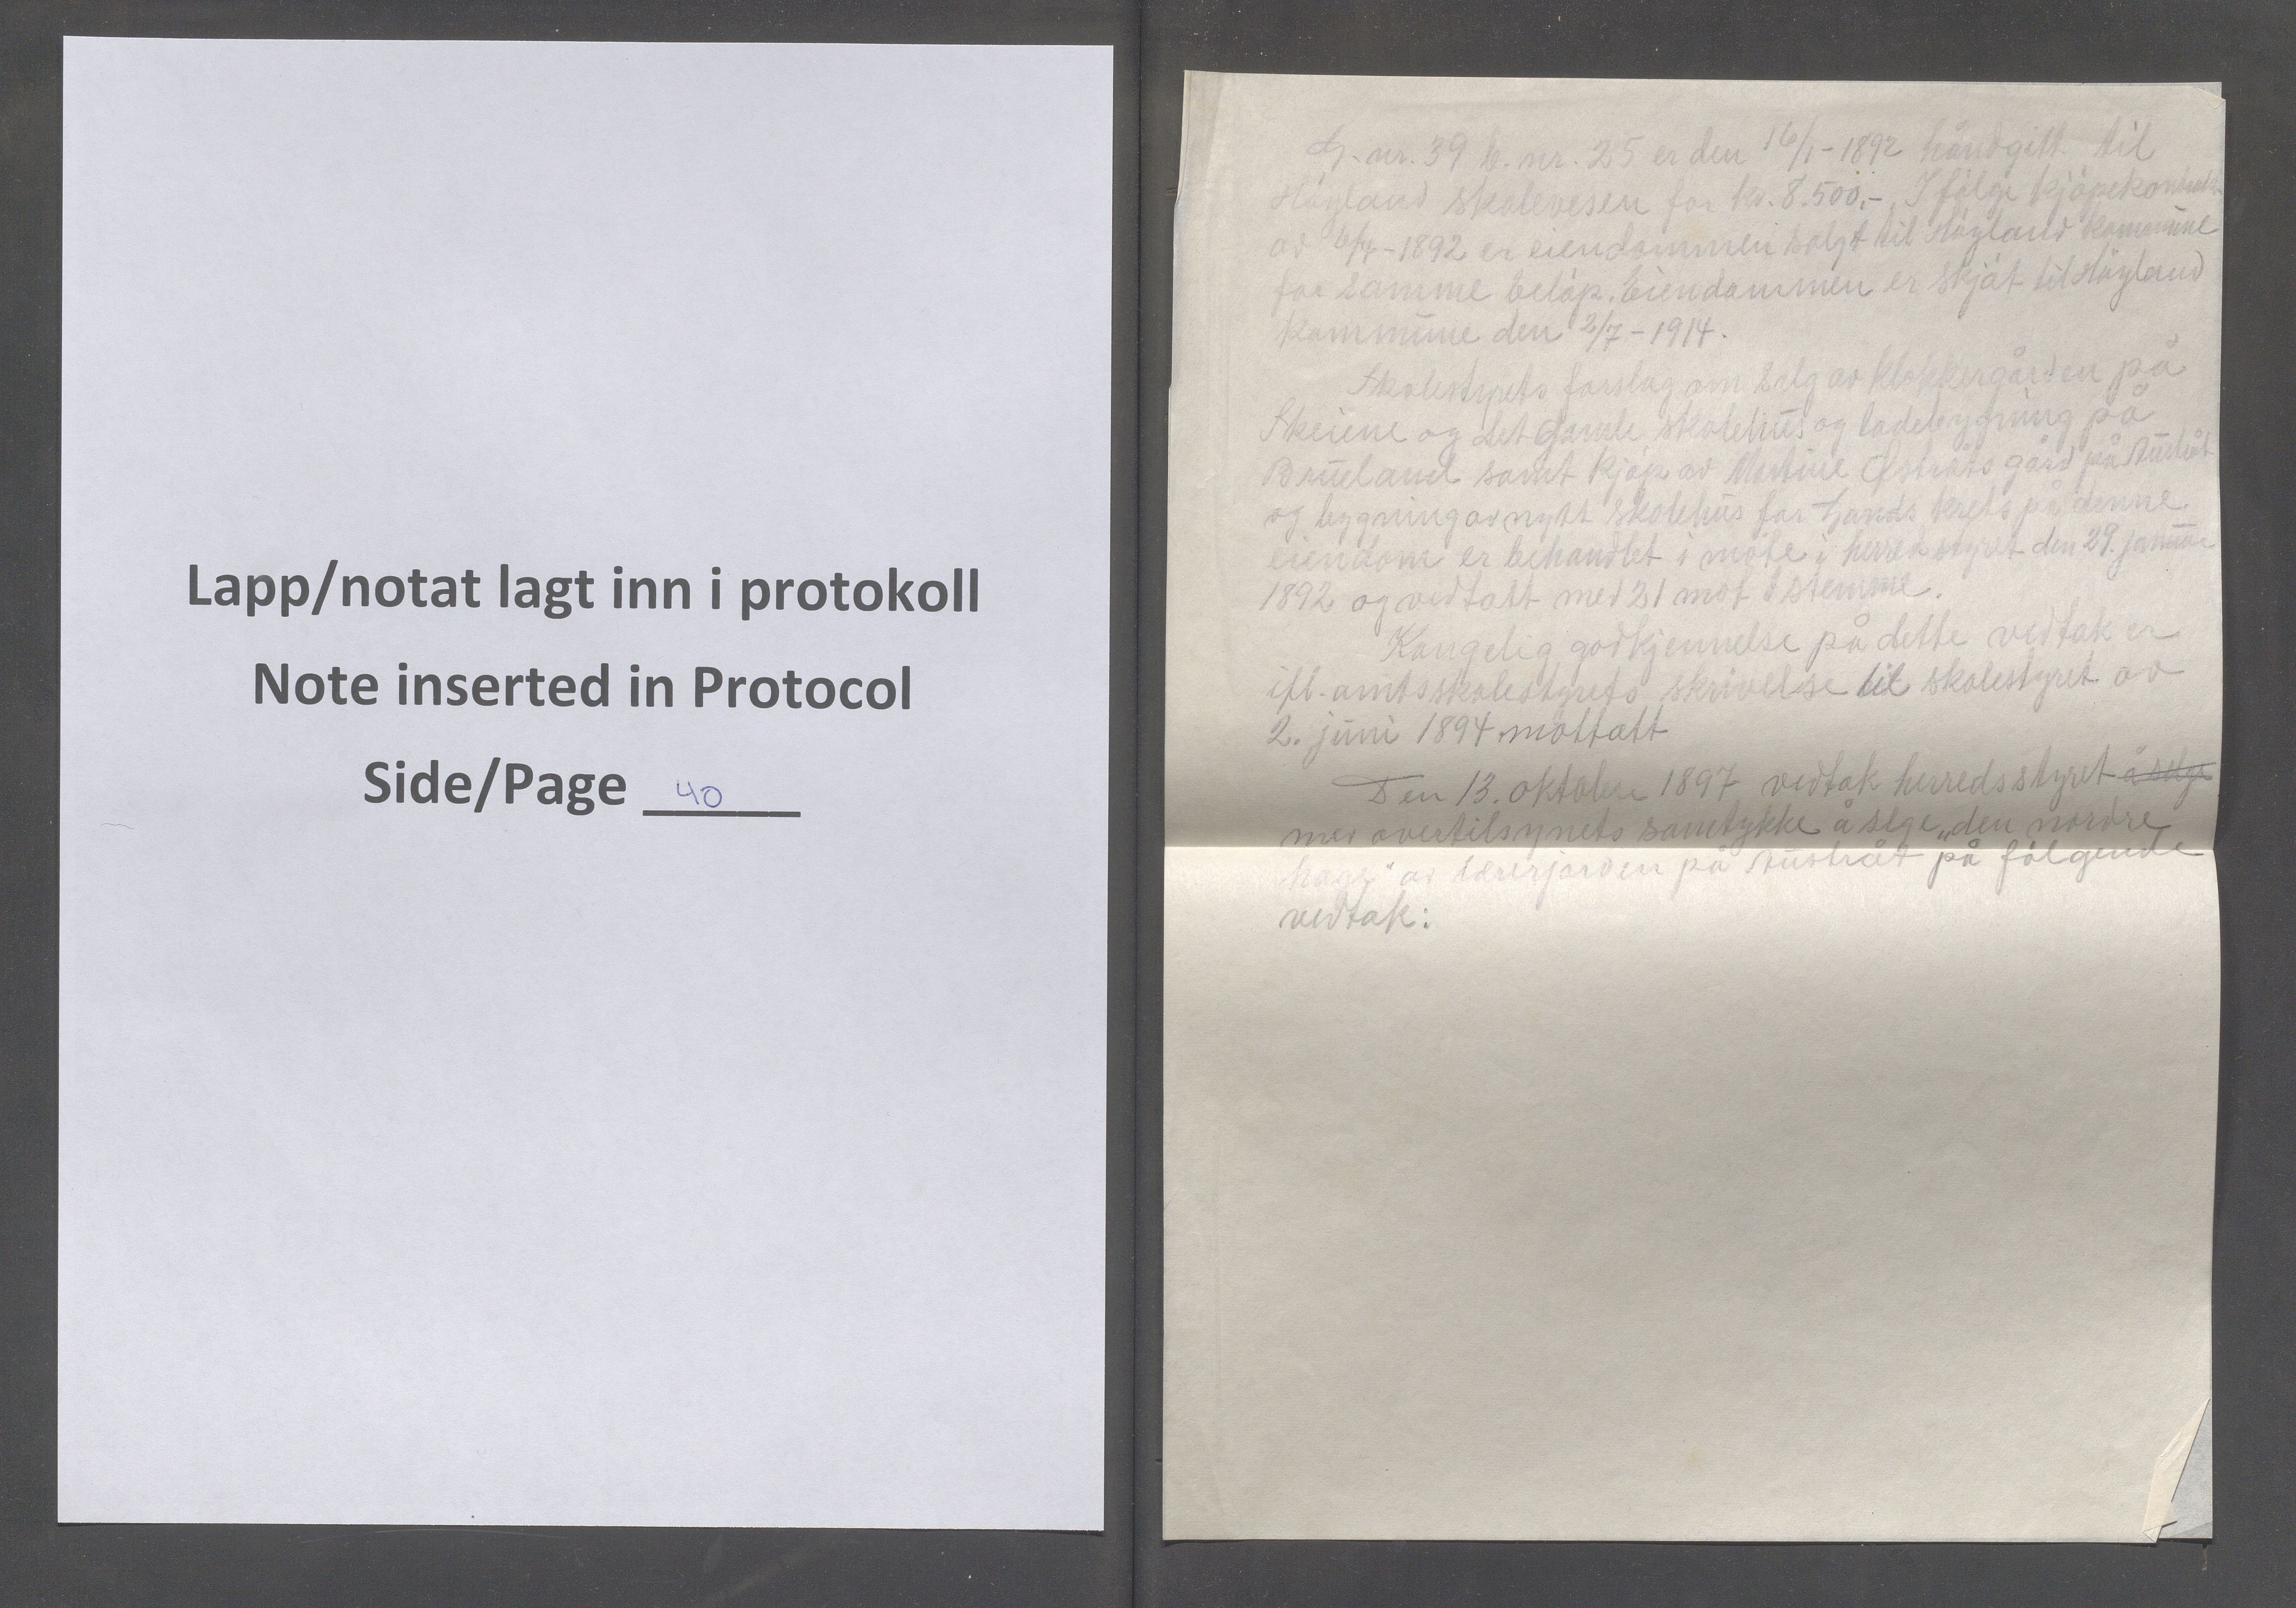 Lapp/notat lagt inn i protokoll
Note inserted in Protocol
Side/Page 40
G. nr. 39 b. nr. 25 er den 16/1-1892 håndgitt til
Höyland skolevesen for kr. 8.500,-. I følge kjöpekontrakt
av 6/4-1892 er eiendommen solgt til Höyland kommune
for samme belöp. Eiendommen er skjöt til Höyland
kommune den 2/7-1914.
Skolestyrets forslag om salg av klokkergården på
Skeiene og det gamle skolehus og ladebygning på
Brueland samt kjöp av Martine Østråts gård på Austråt
og bygning av nytt skolehus for Gands krets på denne
eiendom er behandlet i möte i herredsstyret den 29. januar
1892 og vedtatt med 21 mot stemme.
Kongelig godkjennelse på dette vedtak er
ifl. amtsskolestyrets skrivelse til skolestyret av
2. juni 1894 mottatt
Den 13. oktober 1897 vedtok herredsstyret å selge
med overtilsynets samtykke å selge „den nordre
hage" av lærerjorden på Austråt på fölgende
vedtak: